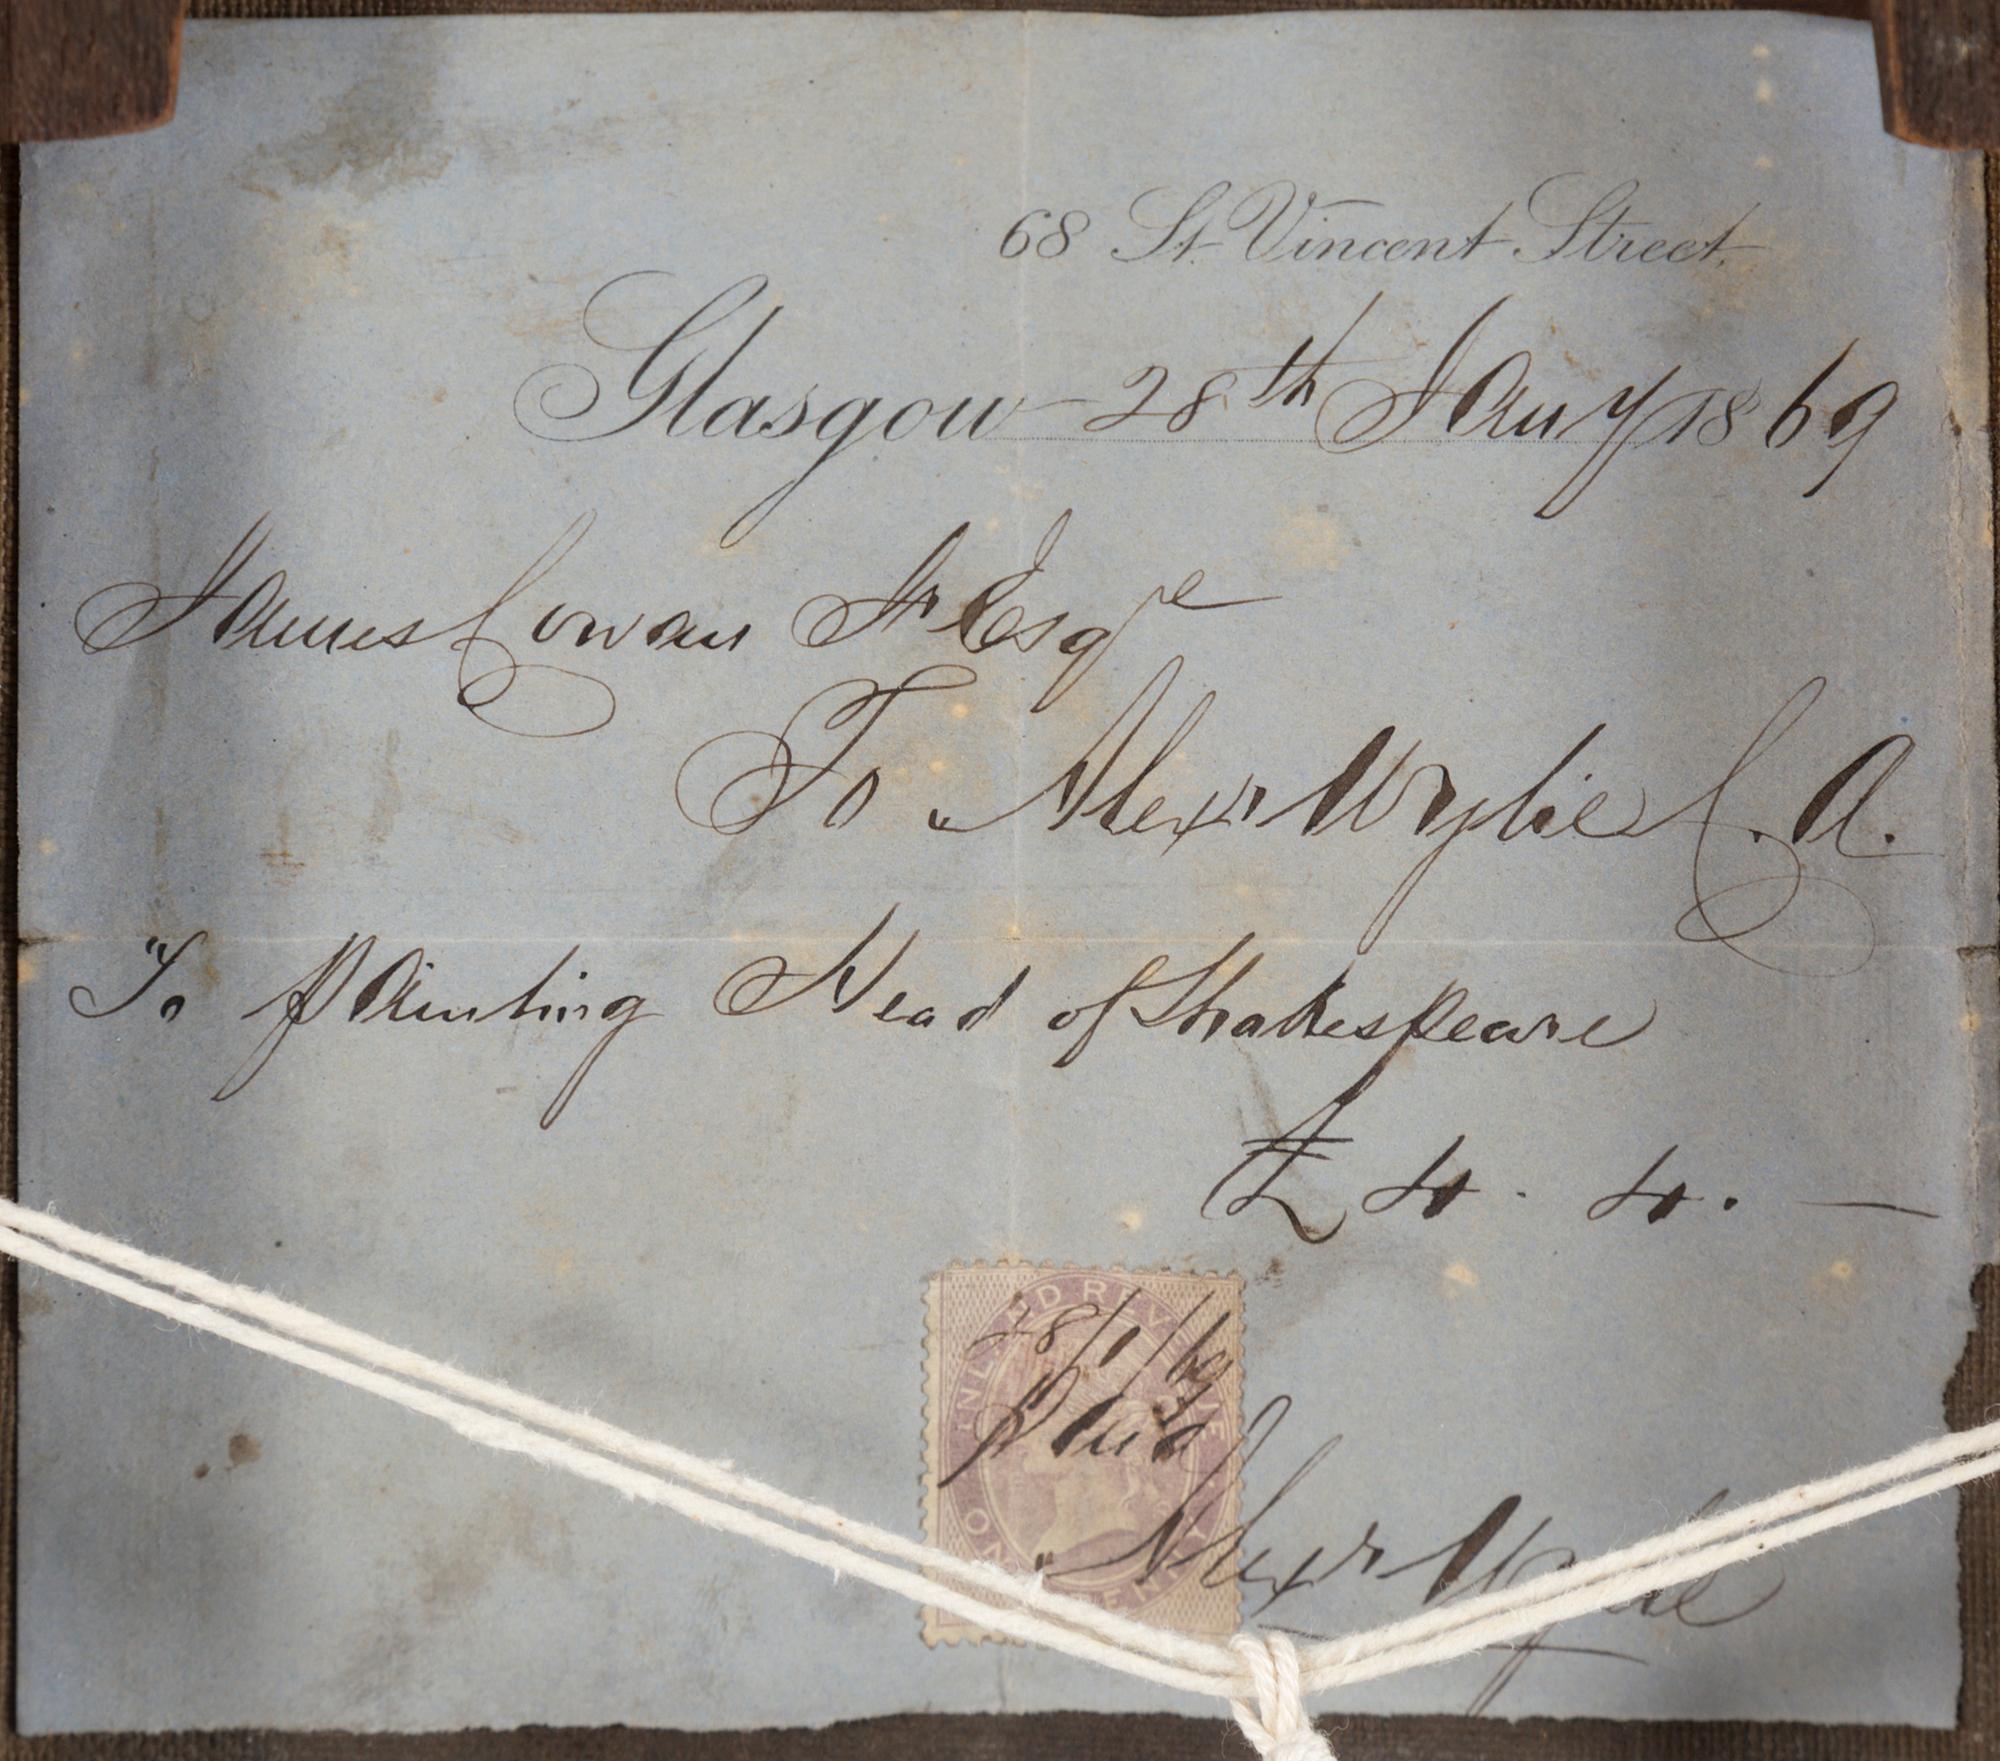 68 St. Vincent Street,
Glasgow 28th Jany 1869
James Cowan Jr Esqre
To Alexr Wylie C. A.
To painting Head of Shakespeare
£ 4 . 4 . —
INLAND REVENUE
28/1/69
Paid
Alexr Wylie
ONE PENNY